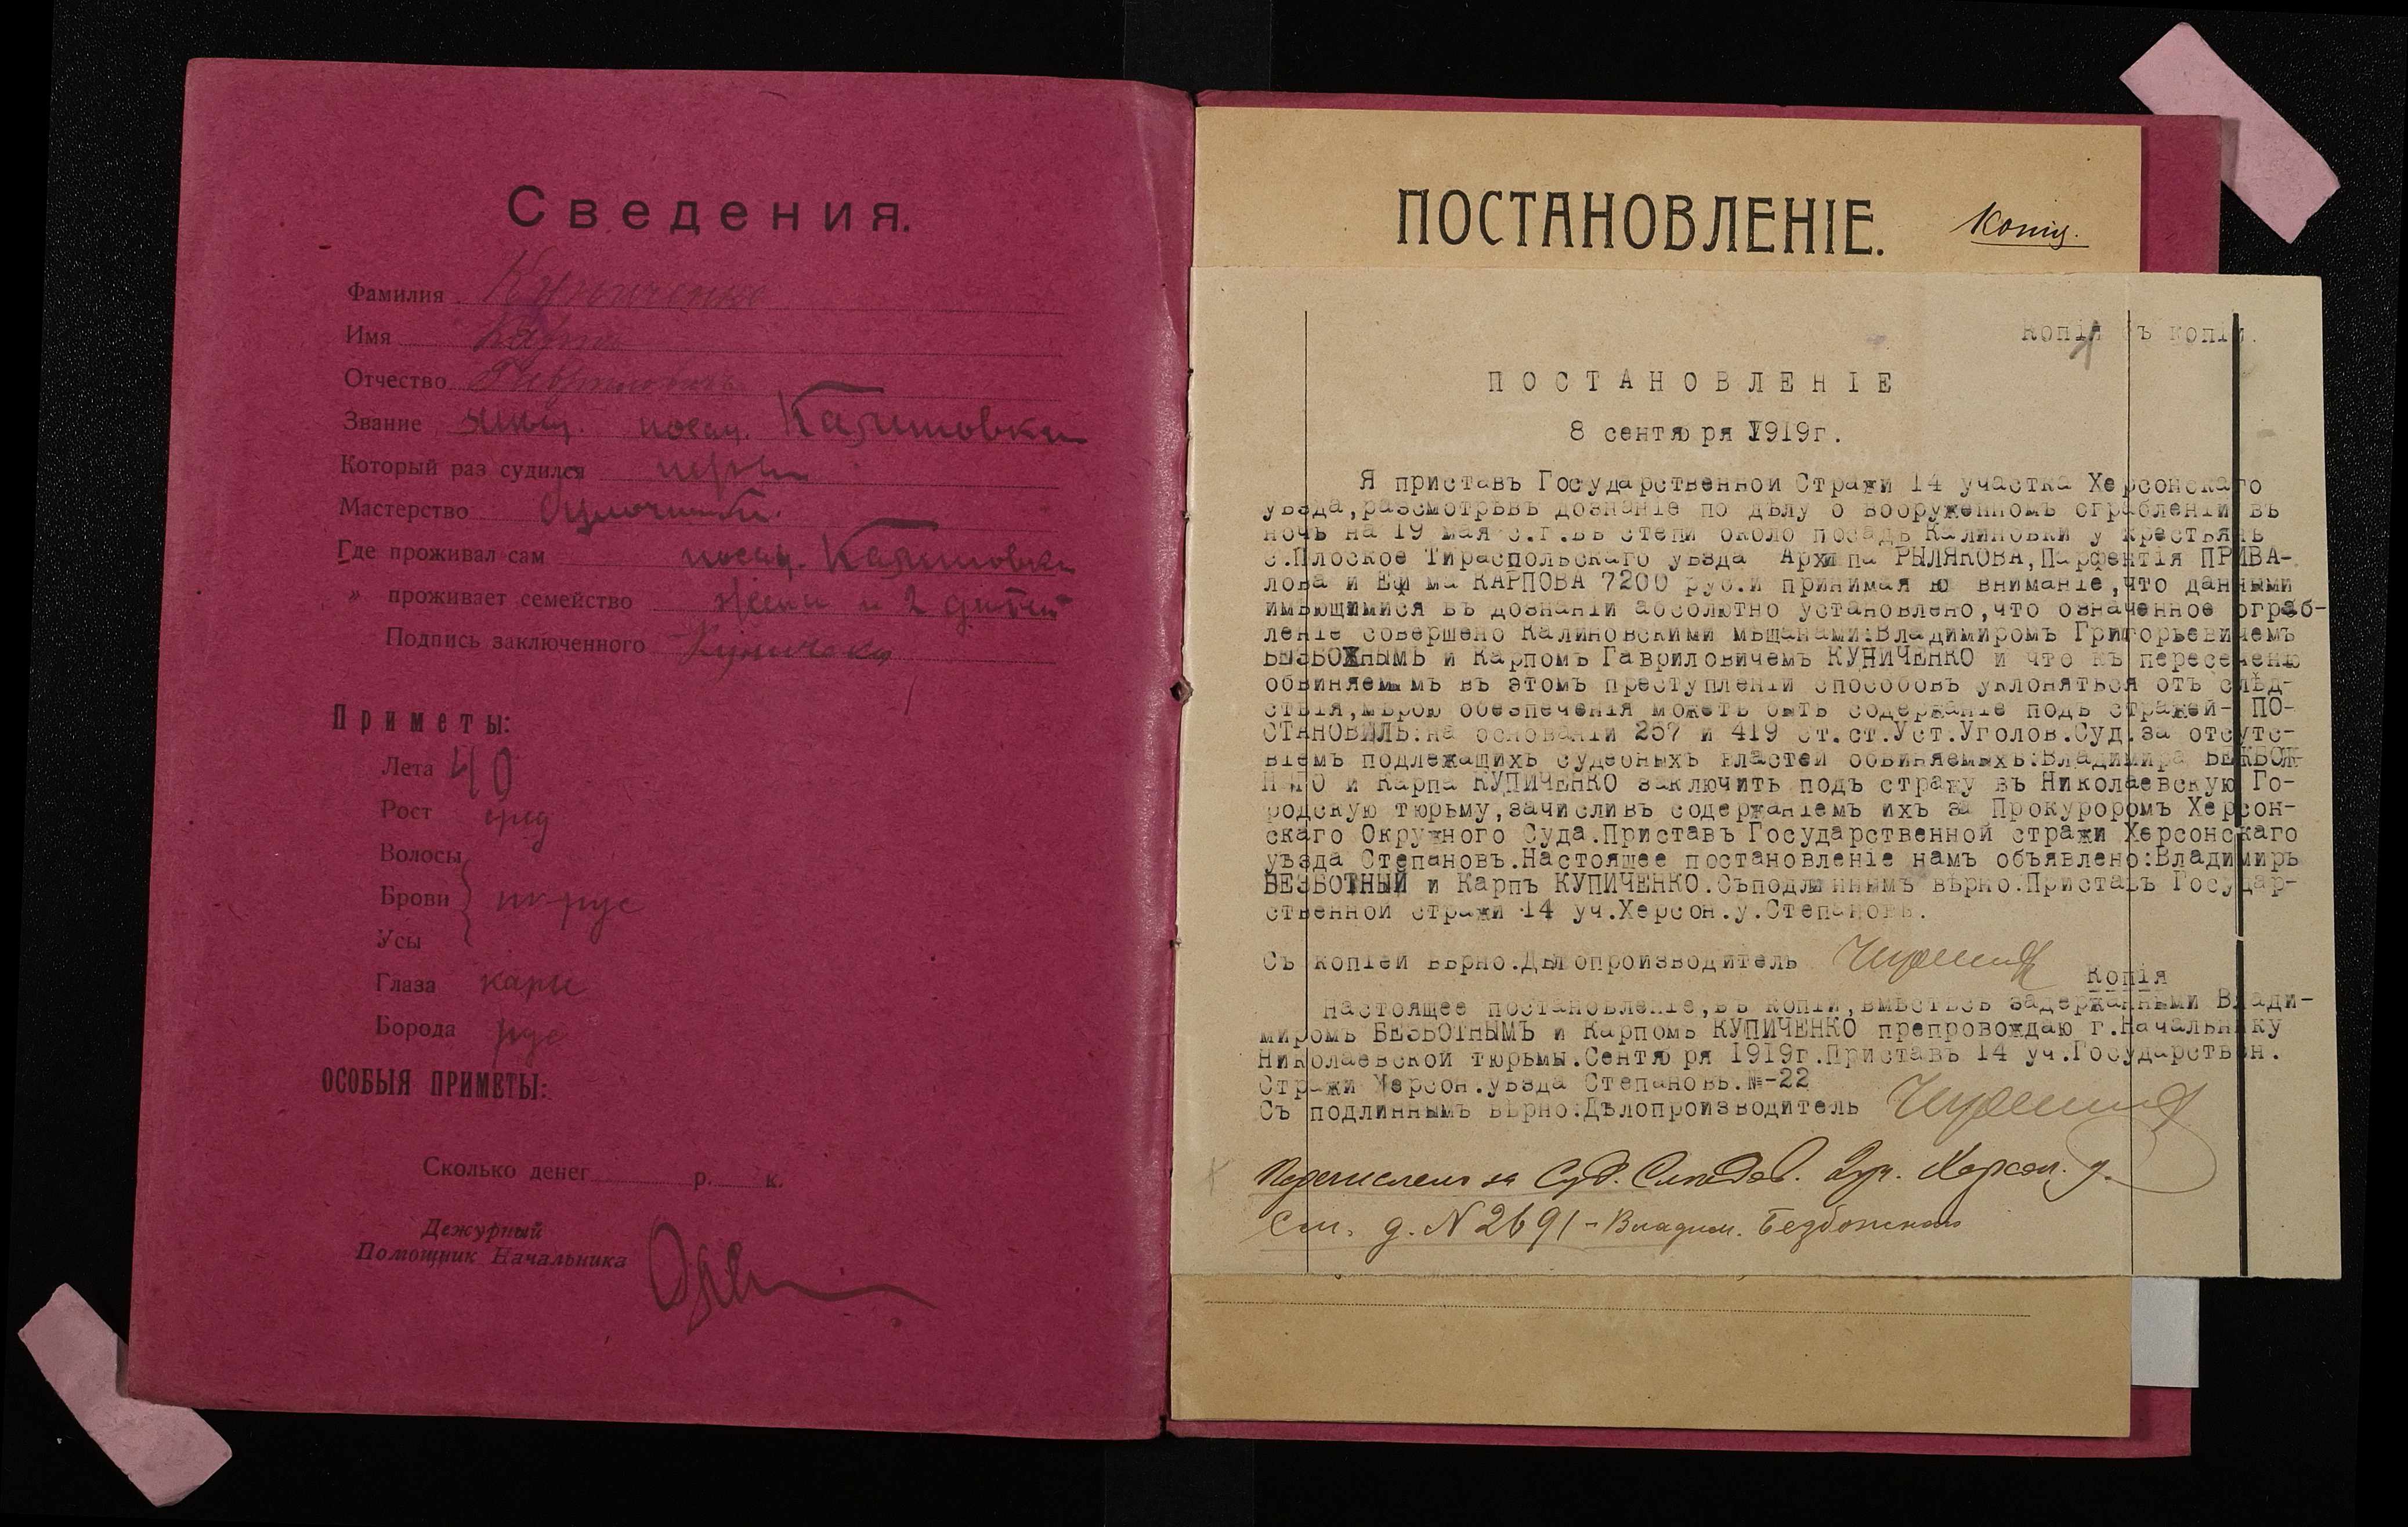 Сведения.
Фамилия Куниченко
Имя Карп
Отчество Гаврилович
Звание мещ. посад. Калиновки
Который раз судился первы
Мастерство
Где проживал сам посад. Калиновки
" проживает семейство жена и 2 дитей
Подпись заключенного
Приметы:
Лета 40
Рост сред
Волосы
Брови
Усы
Глаза карие
Борода рус
ОСОБЫЯ ПРИМЕТЫ:
Сколько денег р. к.
Дежурный
Помощник Начальника
ПОСТАНОВЛЕНІЕ. Копія.
Копія съ копіи.
ПОСТАНОВЛЕНІЕ
8 сентября 1919г.
Я приставъ Государственной Стражи 14 участка Херсонскаго
уѣзда,разсмотрѣвъ дознаніе по дѣлу о вооруженномъ ограбленіи въ
ночь на 19 мая с.г.въ степи около посадъ Калиновки у крестьянъ
с.Плоское Тираспольскаго уѣзда Архипа РЫЛЯКОВА,Парфентія ПРИВА-
лова и Ефима КАРПОВА 7200 руб.и принимая во вниманіе,что данными
имѣющимися въ дознаніи абсолютно установлено,что означенное ограб-
леніе совершено Калиновскими мѣщанами:Владимиромъ Григорьевичемъ
БЕЗБОЖНЫМЪ и Карпомъ Гавриловичемъ КУНИЧЕНКО и что къ пересеченю
обвиняемымъ въ этомъ преступленіи способовъ уклоняться отъ слѣд-
ствія,мѣрою обезпеченія можетъ быть содержаніе подъ стражей- ПО-
СТАНОВИЛЪ:на основаніи 257 и 419 ст.ст.Уст.Уголов.Суд.за отсутс-
віемъ подлежащихъ судебныхъ властей обвиняемыхъ:Владимира БЕЗБОЖ-
НАГО и Карпа КУПИЧЕНКО заключить подъ стражу въ Николаевскую Го-
родскую тюрьму,зачисливъ содержаніемъ ихъ за Прокуроромъ Херсон-
скаго Окружного Суда.Приставъ Государственной стражи Херсонскаго
уѣзда Степановъ.Настоящее постановленіе намъ объявлено:Владимиръ
БЕЗБОТНЫЙ и Карпъ КУПИЧЕНКО.Съподлиннымъ вѣрно.Приставъ Государ-
ственной стражи 14 уч.Херсон.у.Степановъ.
Съ копіей вѣрно.Дѣлопроизводитель
Копія
Настоящее постановленіе,въ копіи,вмѣстѣсъ задержанными Влади-
миромъ БЕЗБОТНЫМЪ и Карпомъ КУПИЧЕНКО препровождаю г.Начальнику
Николаевской тюрьмы.Сентября 1919г.Приставъ 14 уч.Государствен.
Стражи Херсон.уѣзда Степановъ.№-22
Съ подлиннымъ вѣрно:Дѣлопроизводитель
Перечислен за Суд. Следов. Херсон. у.
См. д. N 2691 - Владим. Безбожнаго